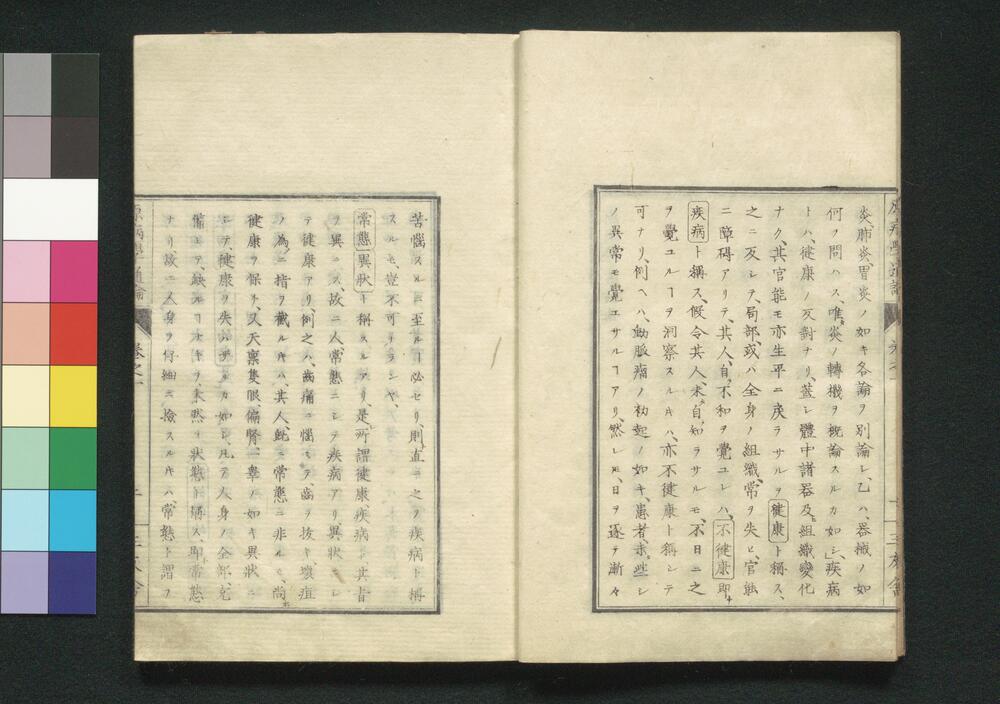 炎、肺炎、胃炎ノ如キ各論ヲ別論シ、乙ハ器械ノ如
何ヲ問ハス、唯炎ノ轉機ヲ概論スルカ如シ、疾病
トハ、健康ノ反對ナリ、蓋シ體中諸器及組織變化
ナク、其官能モ亦生平ニ戻ラサルヲ健康ト稱ス、
之ニ反シテ、局部、或ハ全身ノ組織、常ヲ失ヒ、官能
ニ障碍アリテ、其人、自、不和ヲ覺ユレハ、不健康即
疾病ト稱ス、假令其人、未、自、知ラサルモ、不日ニ之
ヲ覺ユルヿヲ洞察スルキハ、亦不健康ト稱シテ
可ナリ、例ヘハ、動脈瘤ノ初起ノ如キ、患者、赤、些シ
ノ異常モ覺エサルヿアリ、然レ𪜈、日ヲ逐テ漸々
苦惱スルニ至ルヿ必セリ、則、直ニ之ヲ疾病ト稱
スルモ、豈不可ナランヤ、
常態異狀ト稱スルアリ、是、所謂健康、疾病ト其旨
ヲ異ニス、故ニ人常態ニシテ疾病アリ異狀ニシ
テ健康アリ、例之ハ、齒痛ニ惱ミテ、齒ヲ抜キ壞疽
ノ為ニ指ヲ截ルキハ、其人、既ニ常態ニ非ルモ、尚
健康ヲ保チ、又天禀隻眼、偏腎、一睾ノ如キ異狀ニ
シテ、健康ヲ失ハサルカ如シ、凡テ人身ノ全部、完
備シテ、缺ルヿナキヲ、本然ヲ狀態ト稱ス、即、常態
ナリ故ニ人身ヲ仔細ニ檢スルキハ、常態ト謂フ